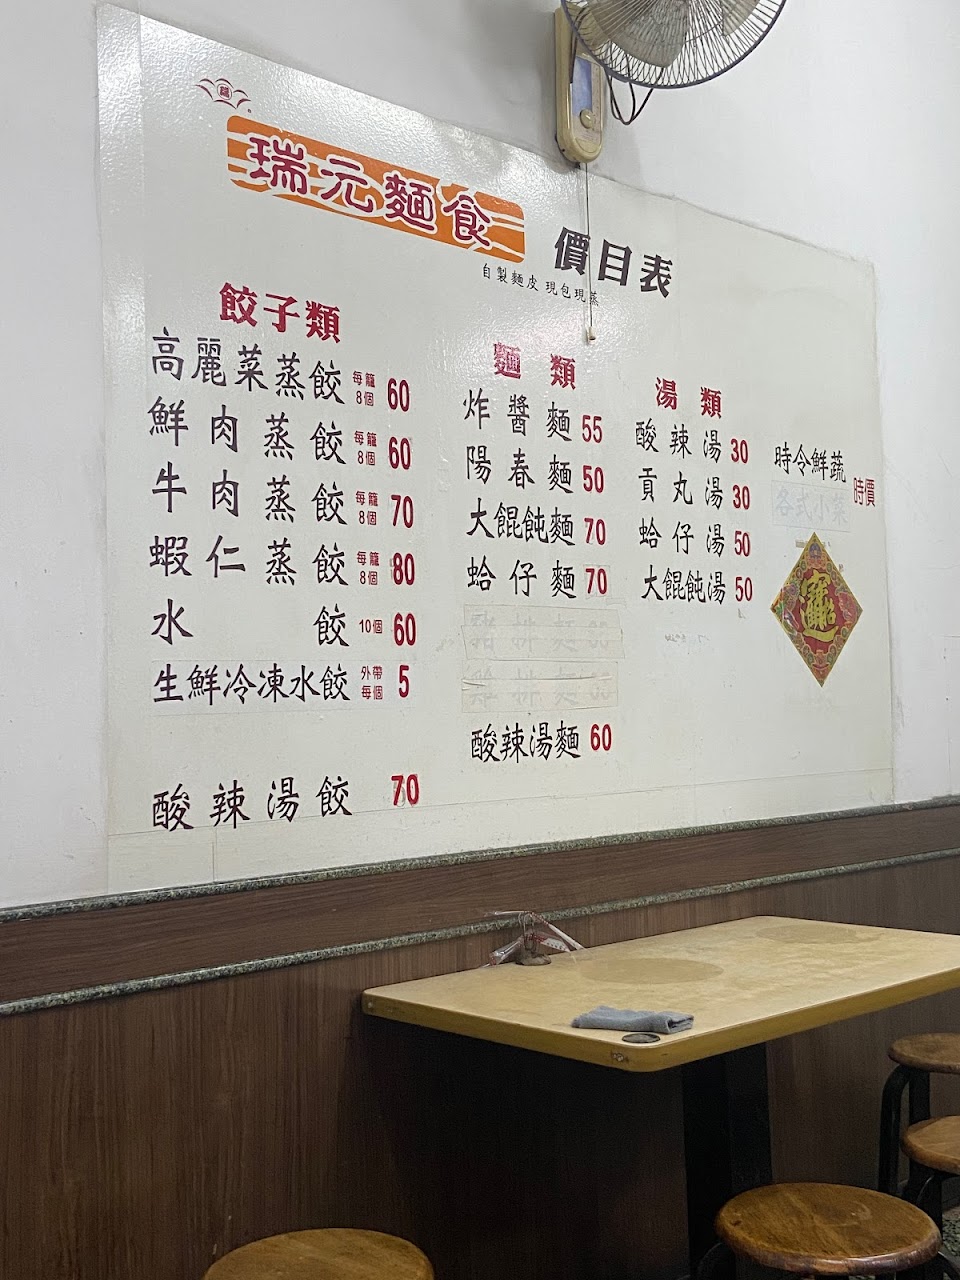 瑞元麵食
價目表
自製麵皮 現包現蒸
餃子類
高麗菜蒸餃 每籠8個 60
鮮肉蒸餃 每籠8個 60
牛肉蒸餃 每籠8個 70
蝦仁蒸餃 每籠8個 80
水餃 10個 60
生鮮冷凍水餃 外帶每個 5
酸辣湯餃 70
麵類
炸醬麵 55
陽春麵 50
大餛飩麵 70
蛤仔麵 70
豬排麵 65
雞排麵 65
酸辣湯麵 60
湯類
酸辣湯 30
貢丸湯 30
蛤仔湯 50
大餛飩湯 50
時令鮮蔬 時價
各式小菜
招財進寶